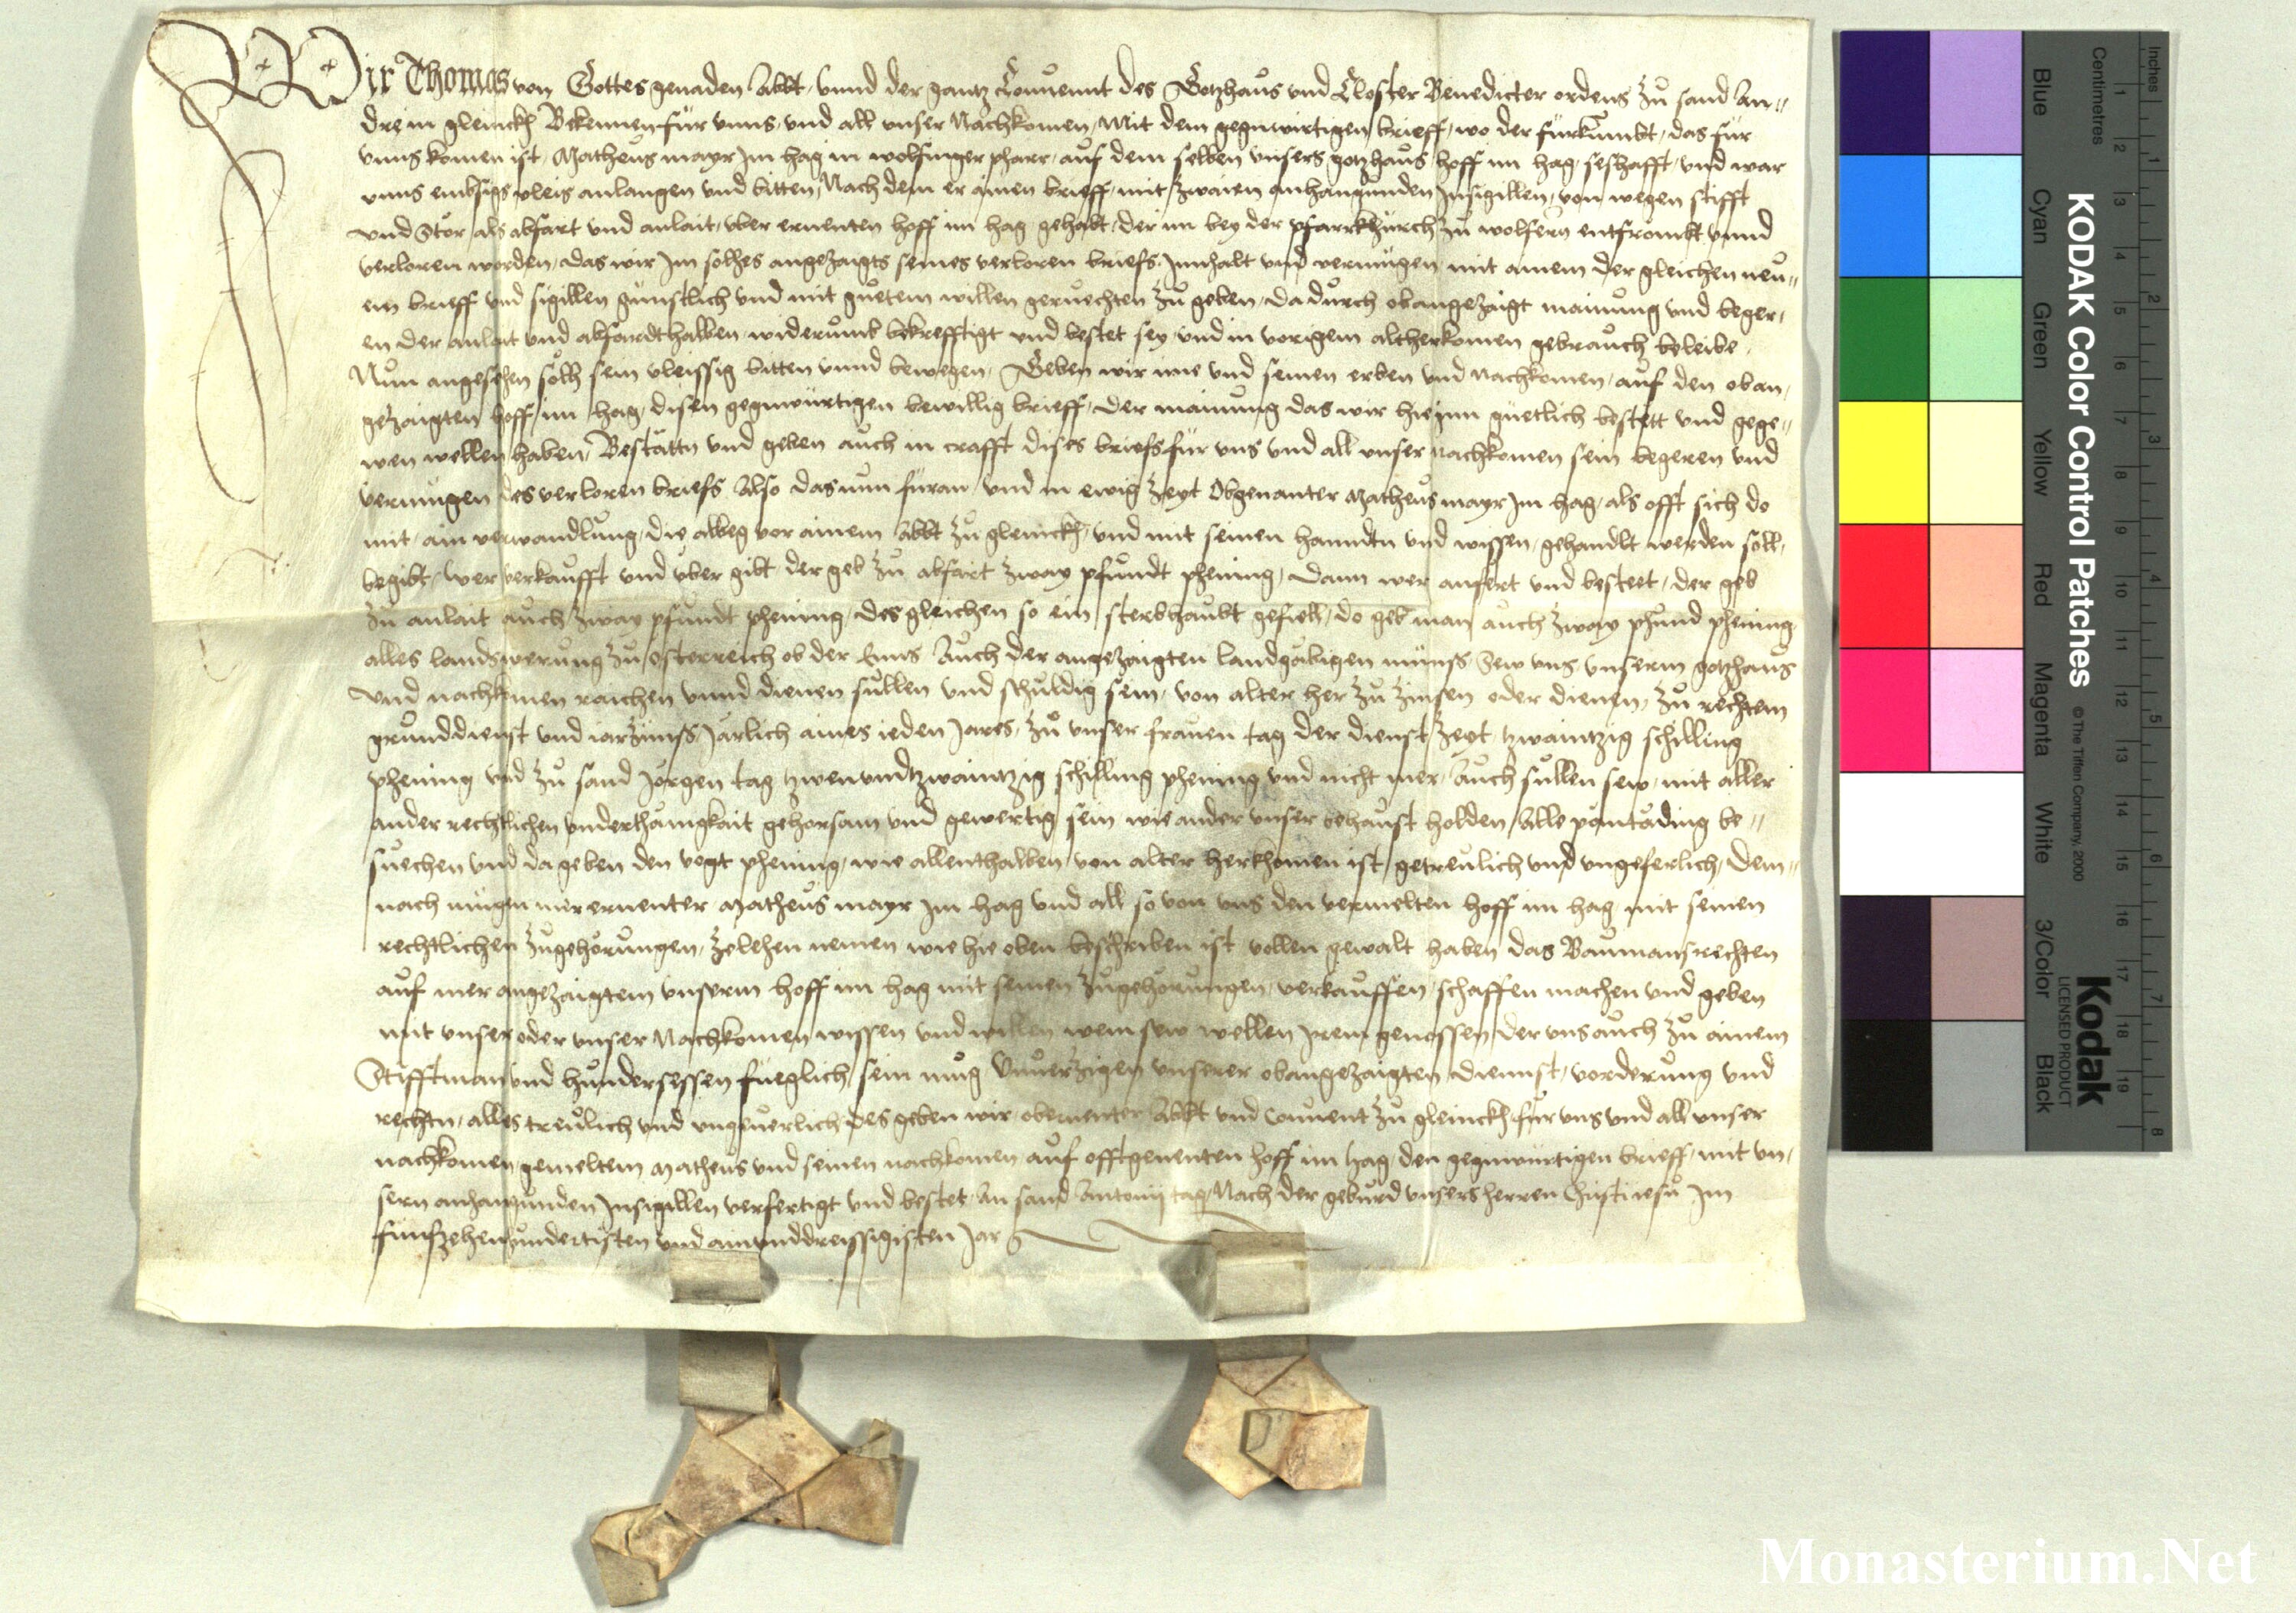 Wir Thomas von Gottes genaden Abbt, vnnd der gantz Conuennt des Gotzhaus vnd Closter Benedicter ordens zu sand An-
dre in gleinckh Bekennen für vnns, vnd all vnser Nachkomen, Mit dem gegnwirtigen brieff, wo der fürkumbt, das für
vnns komen ist, Matheus mayr Im hag in wolfinger pharr, auf dem selben vnsers gotzhaus hoff im hag, seshafft, vnd war
vnns embsigs vleis anlangen vnd bitten, Nach dem er ainen brieff, mit zwaien anhangunden Insigillen, von wegen stifft
vnd Stör als abfart vnd anlait, vber ernenten hoff im hag gehabt, der im bey der pfarrkhürch zu wolfern entfrombt vnnd
verloren worden, das wir Im solhes angezaigts seines verloren briefs Innhalt vnd vermügen mit ainem der gleichen neu-
en brieff vnd sigillen günstlich vnd mit guetem willen geruechten zu geben, dadurch obangezaigt mainung vnd beger,
en der anlait vnd abfardthalben widerumb bekrefftigt vnd bestet sey, vnd in vorigem altherkomen gebrauch beleibe,
Nun angesehen solh sein vleissig bitten vnnd bewegen, Geben wir ime vnd seinen erben vnd nachkomen, auf den oban,
gezaigten hoff im hag disen gegnwürtigen bewillig brieff, der mainung das wir hierinn güetlich bestett vnd gege-
wen wellen haben, Bestättn vnd geben auch in crafft dises briefs für vns vnd all vnser nachkomen sein begeren vnd
vermügen des verloren briefs Also das nun füran vnd in ewig zeyt Obgenanter Matheus mayr Im hag, als offt sich do
mit, ain verwandlung, die albeg vor ainem Abbt zu gleinckh, vnd mit seinen hanndtn vnd wissen, gehandlt werden soll,
begibt, wer verkaufft vnd vber gibt der geb zu abfart zway pfundt phening, dann wer anfert vnd besteet, der geb
zu anlait auch zway pfundt phening, des gleichen so ein sterbhaubt gefiell, do geb man auch zway phund phening
alles landswerung zu österreich ob der Enns Auch der angezaigten landgäbigen münss, Sew vns, vnserm gotzhaus
vnd nachkomen raichen vnnd dienen sullen vnd schuldig sein, von alter her zu zinsen oder dienen, zu rechtem
grunddienst vnd iarzinss Järlich aines ieden Jares, zu vnser frauen tag der dienst zeyt tzwaintzig schilling
phening vnd zu sand Jörgen tag tzwenvndtzwaintzig schilling phening vnd nicht mer, Auch sullen sew, mit aller
ander rechtlichen vnderthänigkait gehorsam vnd gewertig sein wie ander vnser behaust holden Alle pantäding be-
suechen vnd da geben den vogt phening, wie allenthalben von alter herkhomen ist, getreulich vnd vngeferlich, dem-
nach mügen mer ernenter Matheus mayr Im hag vnd all so von vns den vermelten hoff im hag mit seinen
rechtlichen zugehörungen, zelehen nemen wie hie oben beschriben ist vollen gewalt haben das Baumansrechten
auf mer angezaigtem vnserm hoff im hag mit seinen zugehörungen, verkauffen, schaffen machen vnd geben
mit vnser oder vnser Nachkomen wissen vnd willen wem sew wellen Irem genossen der vns auch zu ainem
Stifftman vnd hündersessen füeglich sein mug Vnuerzigen vnserer obangezaigten dienst, vorderung vnd
rechtn, alles treulich vnd vngeuerlich des geben wir obernenter Abbt vnd Conuent zu gleinckh für vns vnd all vnser
nachkomen, gemeltem Matheus vnd seinen nachkomen auf offtgenenten hoff im hag, den gegnwürtigen brieff, mit vn,
sern anhangunden Insigillen verfertigt vnd bestet An sand Antonij tag, Nach der geburd vnsers herren Christi iesu Im
fünfzehenhundertisten vnd ainvnddreissigisten Jar
KODAK Color Control Patches
© The Tiffen Company, 2000
Kodak
LICENSED PRODUCT
Inches
Centimetres
Blue
Cyan
Green
Yellow
Red
Magenta
White
3/Color
Black
1 2 3 4 5 6 7 8
1 2 3 4 5 6 7 8 9 10 11 12 13 14 15 16 17 18 19
Monasterium.Net